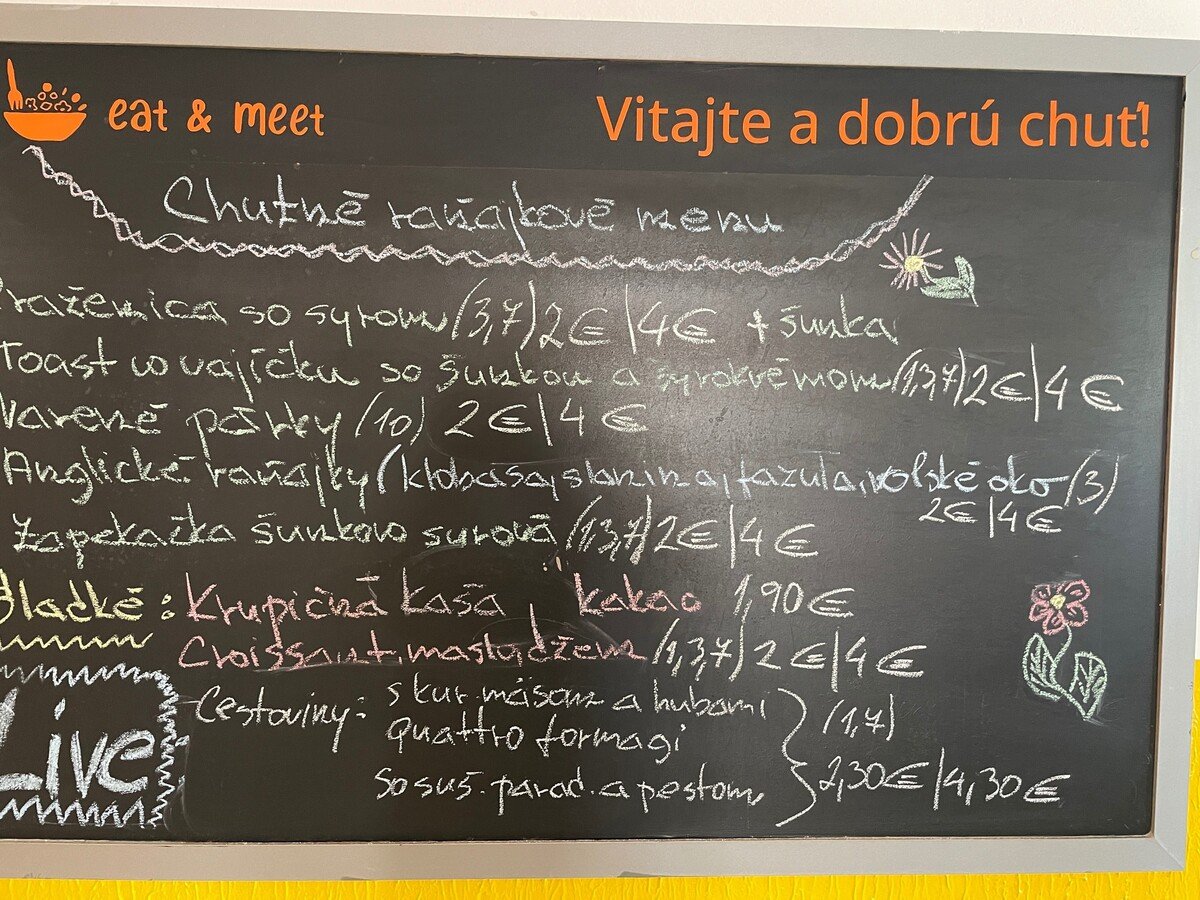 eat & meet
Vitajte a dobrú chuť!
Chutné raňajkové menu
Praženica so syrom (3,7) 2€ | 4€ + šunka
Toast vo vajíčku so šunkou a syrokrémom (1,3,7) 2€ | 4€
Varené párky (10) 2€ | 4€
Anglické raňajky (klobása, slanina, fazuľa, volské oko (3)
2€ | 4€
Zapekačka šunkovo syrová (1,3,7) 2€ | 4€
Sladké: Krupičná kaša, kakao 1,90€
Croissant, maslo, džem (1,3,7) 2€ | 4€
Live
Cestoviny: s kur. mäsom a hubami
quattro formagi (1,7)
so suš. parad. a pestom 2,30€ | 4,30€